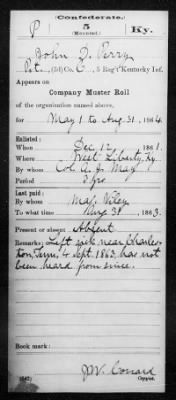 Confederate.
P 5 Ky.
(Mounted)
John D. Perry
Pvt., (2d) Co. C, 5 Reg't Kentucky Inf.
Appears on
Company Muster Roll
of the organization named above,
for May 1 to Aug 31, 1864.
Enlisted:
When Dec 12, 1861.
Where West Liberty, Ky
By whom Col. A. J. May
Period 3 yrs
Last paid:
By whom Maj. Viley
To what time Aug 31, 1863.
Present or absent Absent
Remarks: Left sick near Charles-
ton, Tenn, 4 Sept. 1863, has not
been heard from since.
Book mark:
J. W. Conard
(642) Copyist.